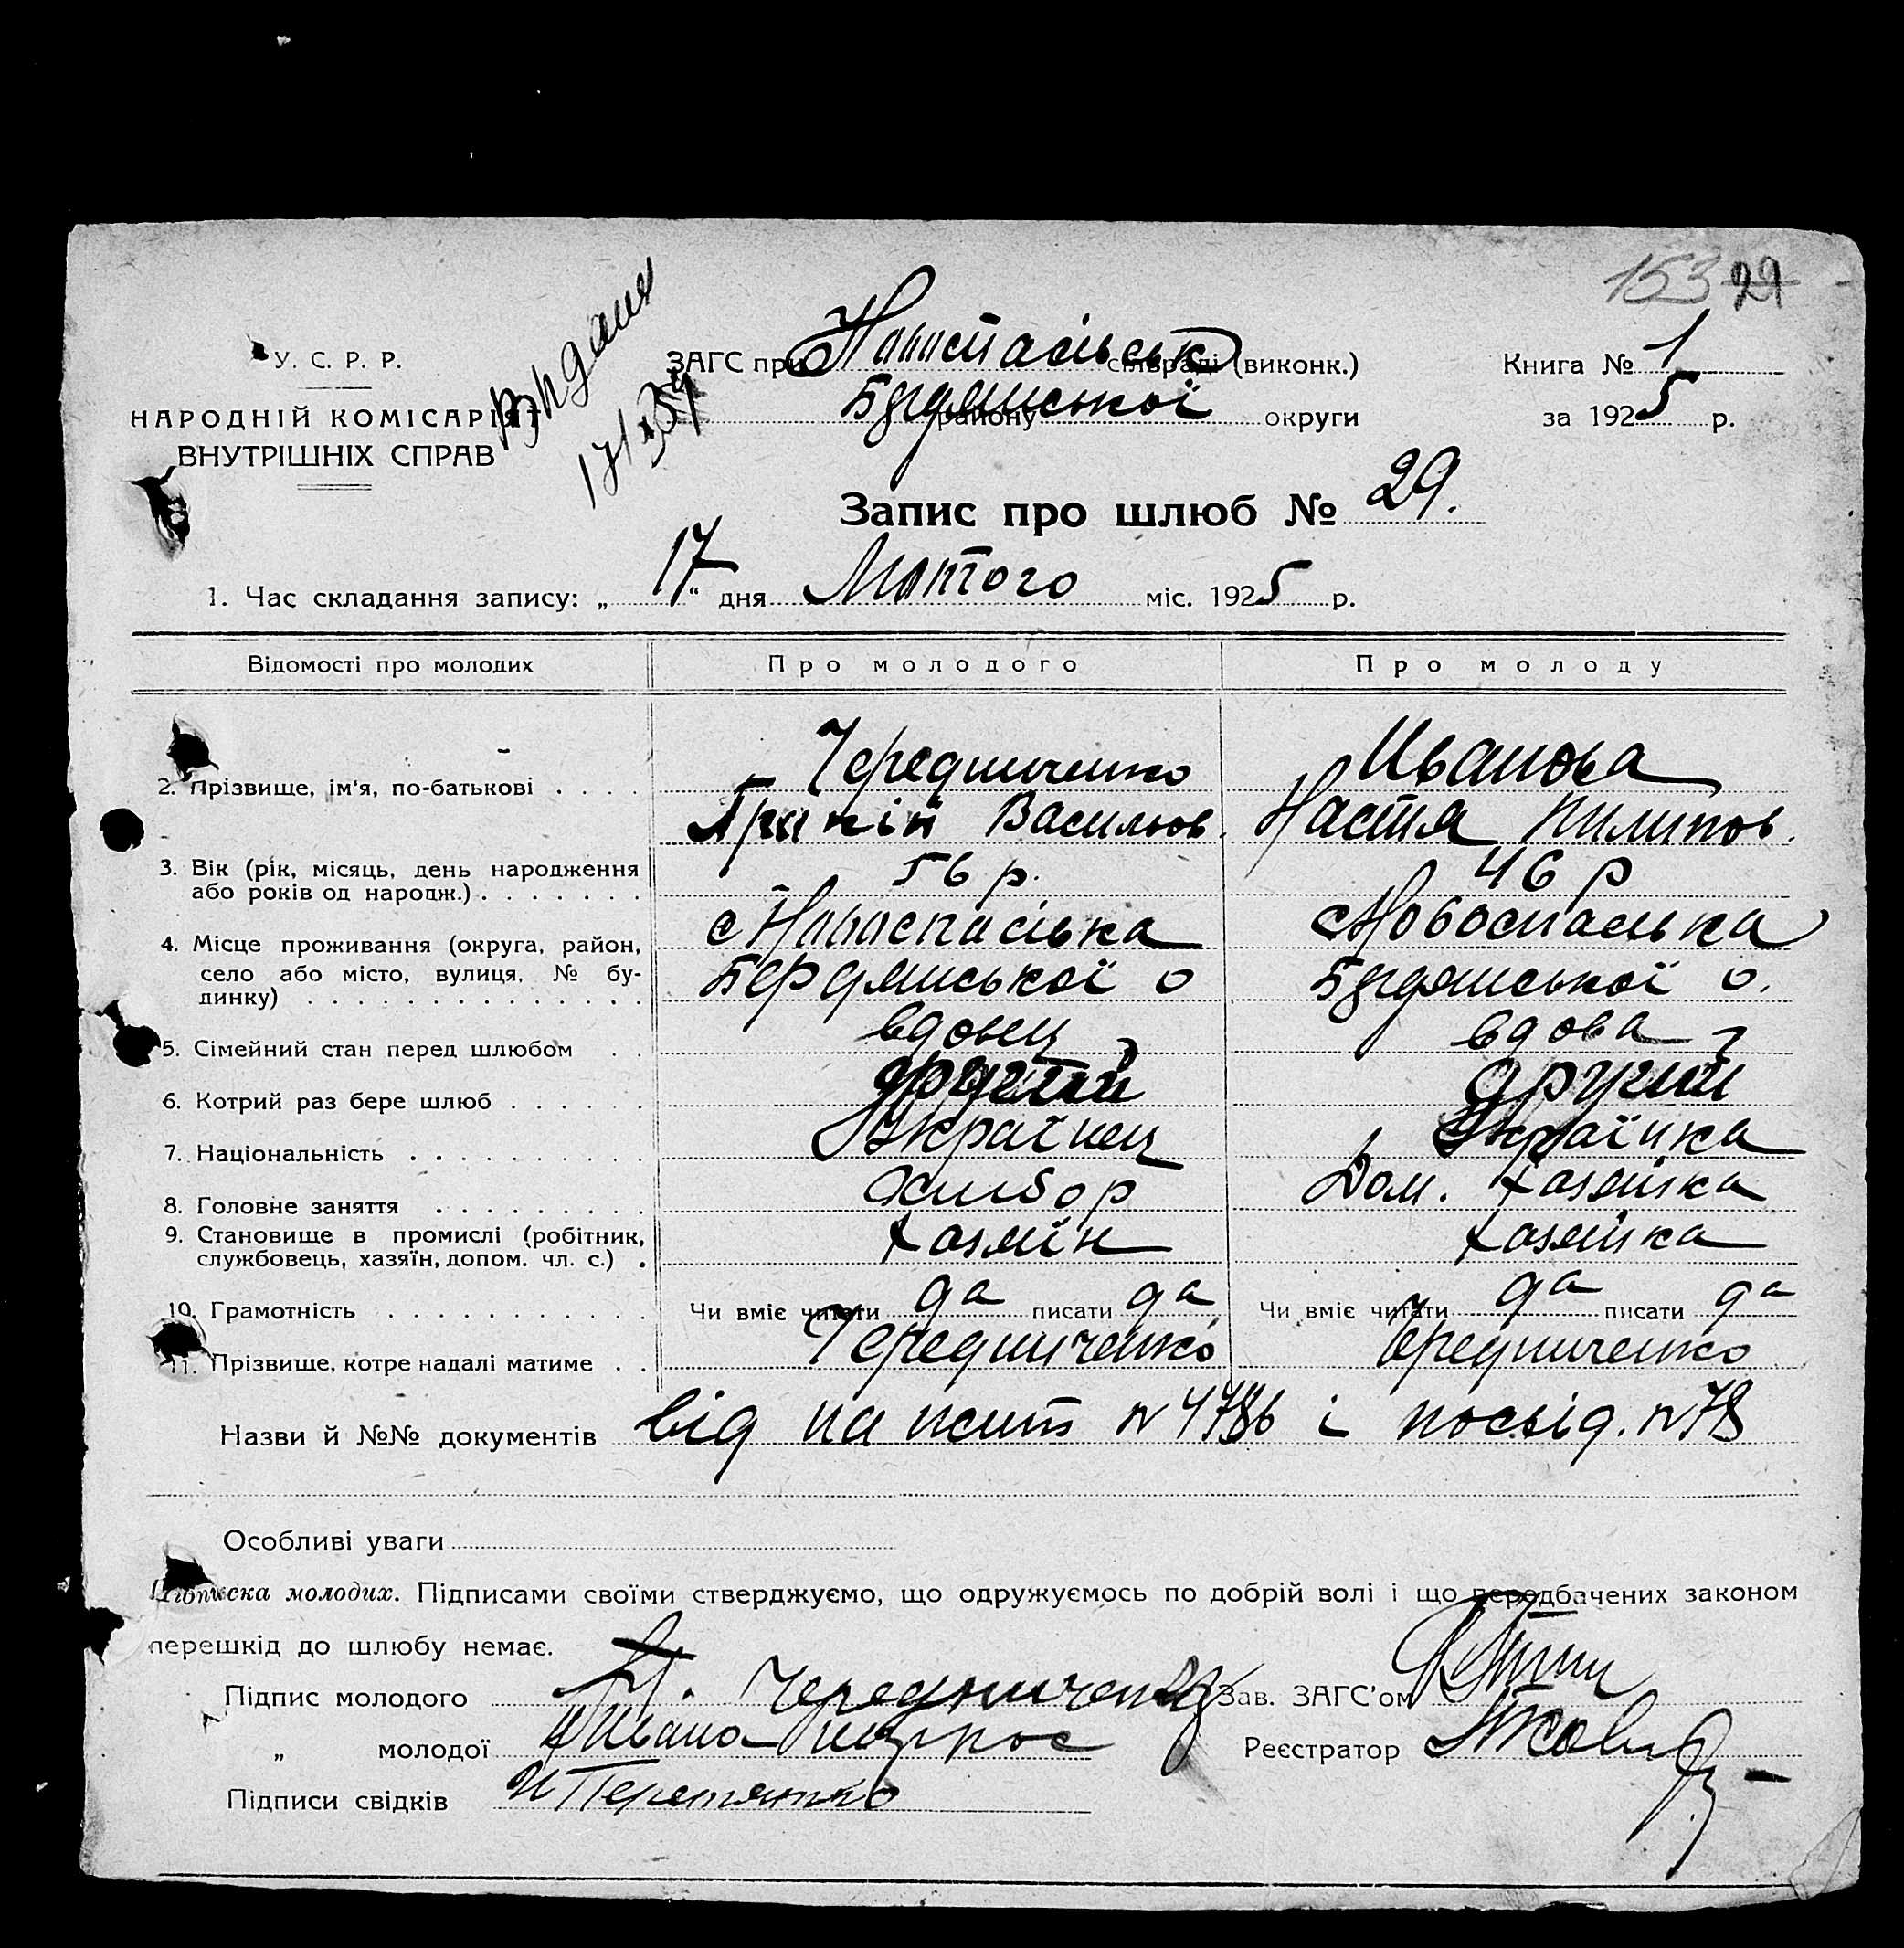 153 29
Видана
У. С. Р. Р.
ЗАГС при Новоспасівськ сільраді (виконк.)
Книга № 1
НАРОДНІЙ КОМІСАРІЯТ
ВНУТРІШНІХ СПРАВ
району Бердянської округи
за 1925 р.
Запис про шлюб № 29.
1. Час складання запису: „17“ дня Лютого міс. 1925 р.
Відомості про молодих Про молодого Про молоду
2. Прізвище, ім'я, по-батькові . . . . Чередниченко Иванова
Васильов. Настя Пилипов.
3. Вік (рік, місяць, день народження або років од народж.) . . . . . . . 56 р. 46 р
4. Місце проживання (округа, район, с Новоспасівка с Новоспасівка
село або місто, вулиця, № будинку) . . . . . . . . . . . . . . Бердянської о Бердянської о.
5. Сімейний стан перед шлюбом . . вдовец вдова
6. Котрий раз бере шлюб . . . . . . другий
7. Національність . . . . . . . . . . Українец Українка
8. Головне заняття . . . . . . . . . Хлибор Дом. хазяйка
9. Становище в промислі (робітник, службовець, хазяїн, допом. чл. с.) . хазяїн хазяйка
10. Грамотність . . . . . . . . . . . . Чи вміє читати да писати да Чи вміє читати да писати да
11. Прізвище, котре надалі матиме . . Чередниченко Чередниченко
Назви й №№ документів від на жит N 4786 і посвід. N 78
Особливі уваги
Підписка молодих. Підписами своїми стверджуємо, що одружуємось по добрій волі і що передбачених законом
перешкід до шлюбу немає.
Підпис молодого Чередниченко Зав. ЗАГС'ом
„ молодої Реєстратор
Підписи свідків